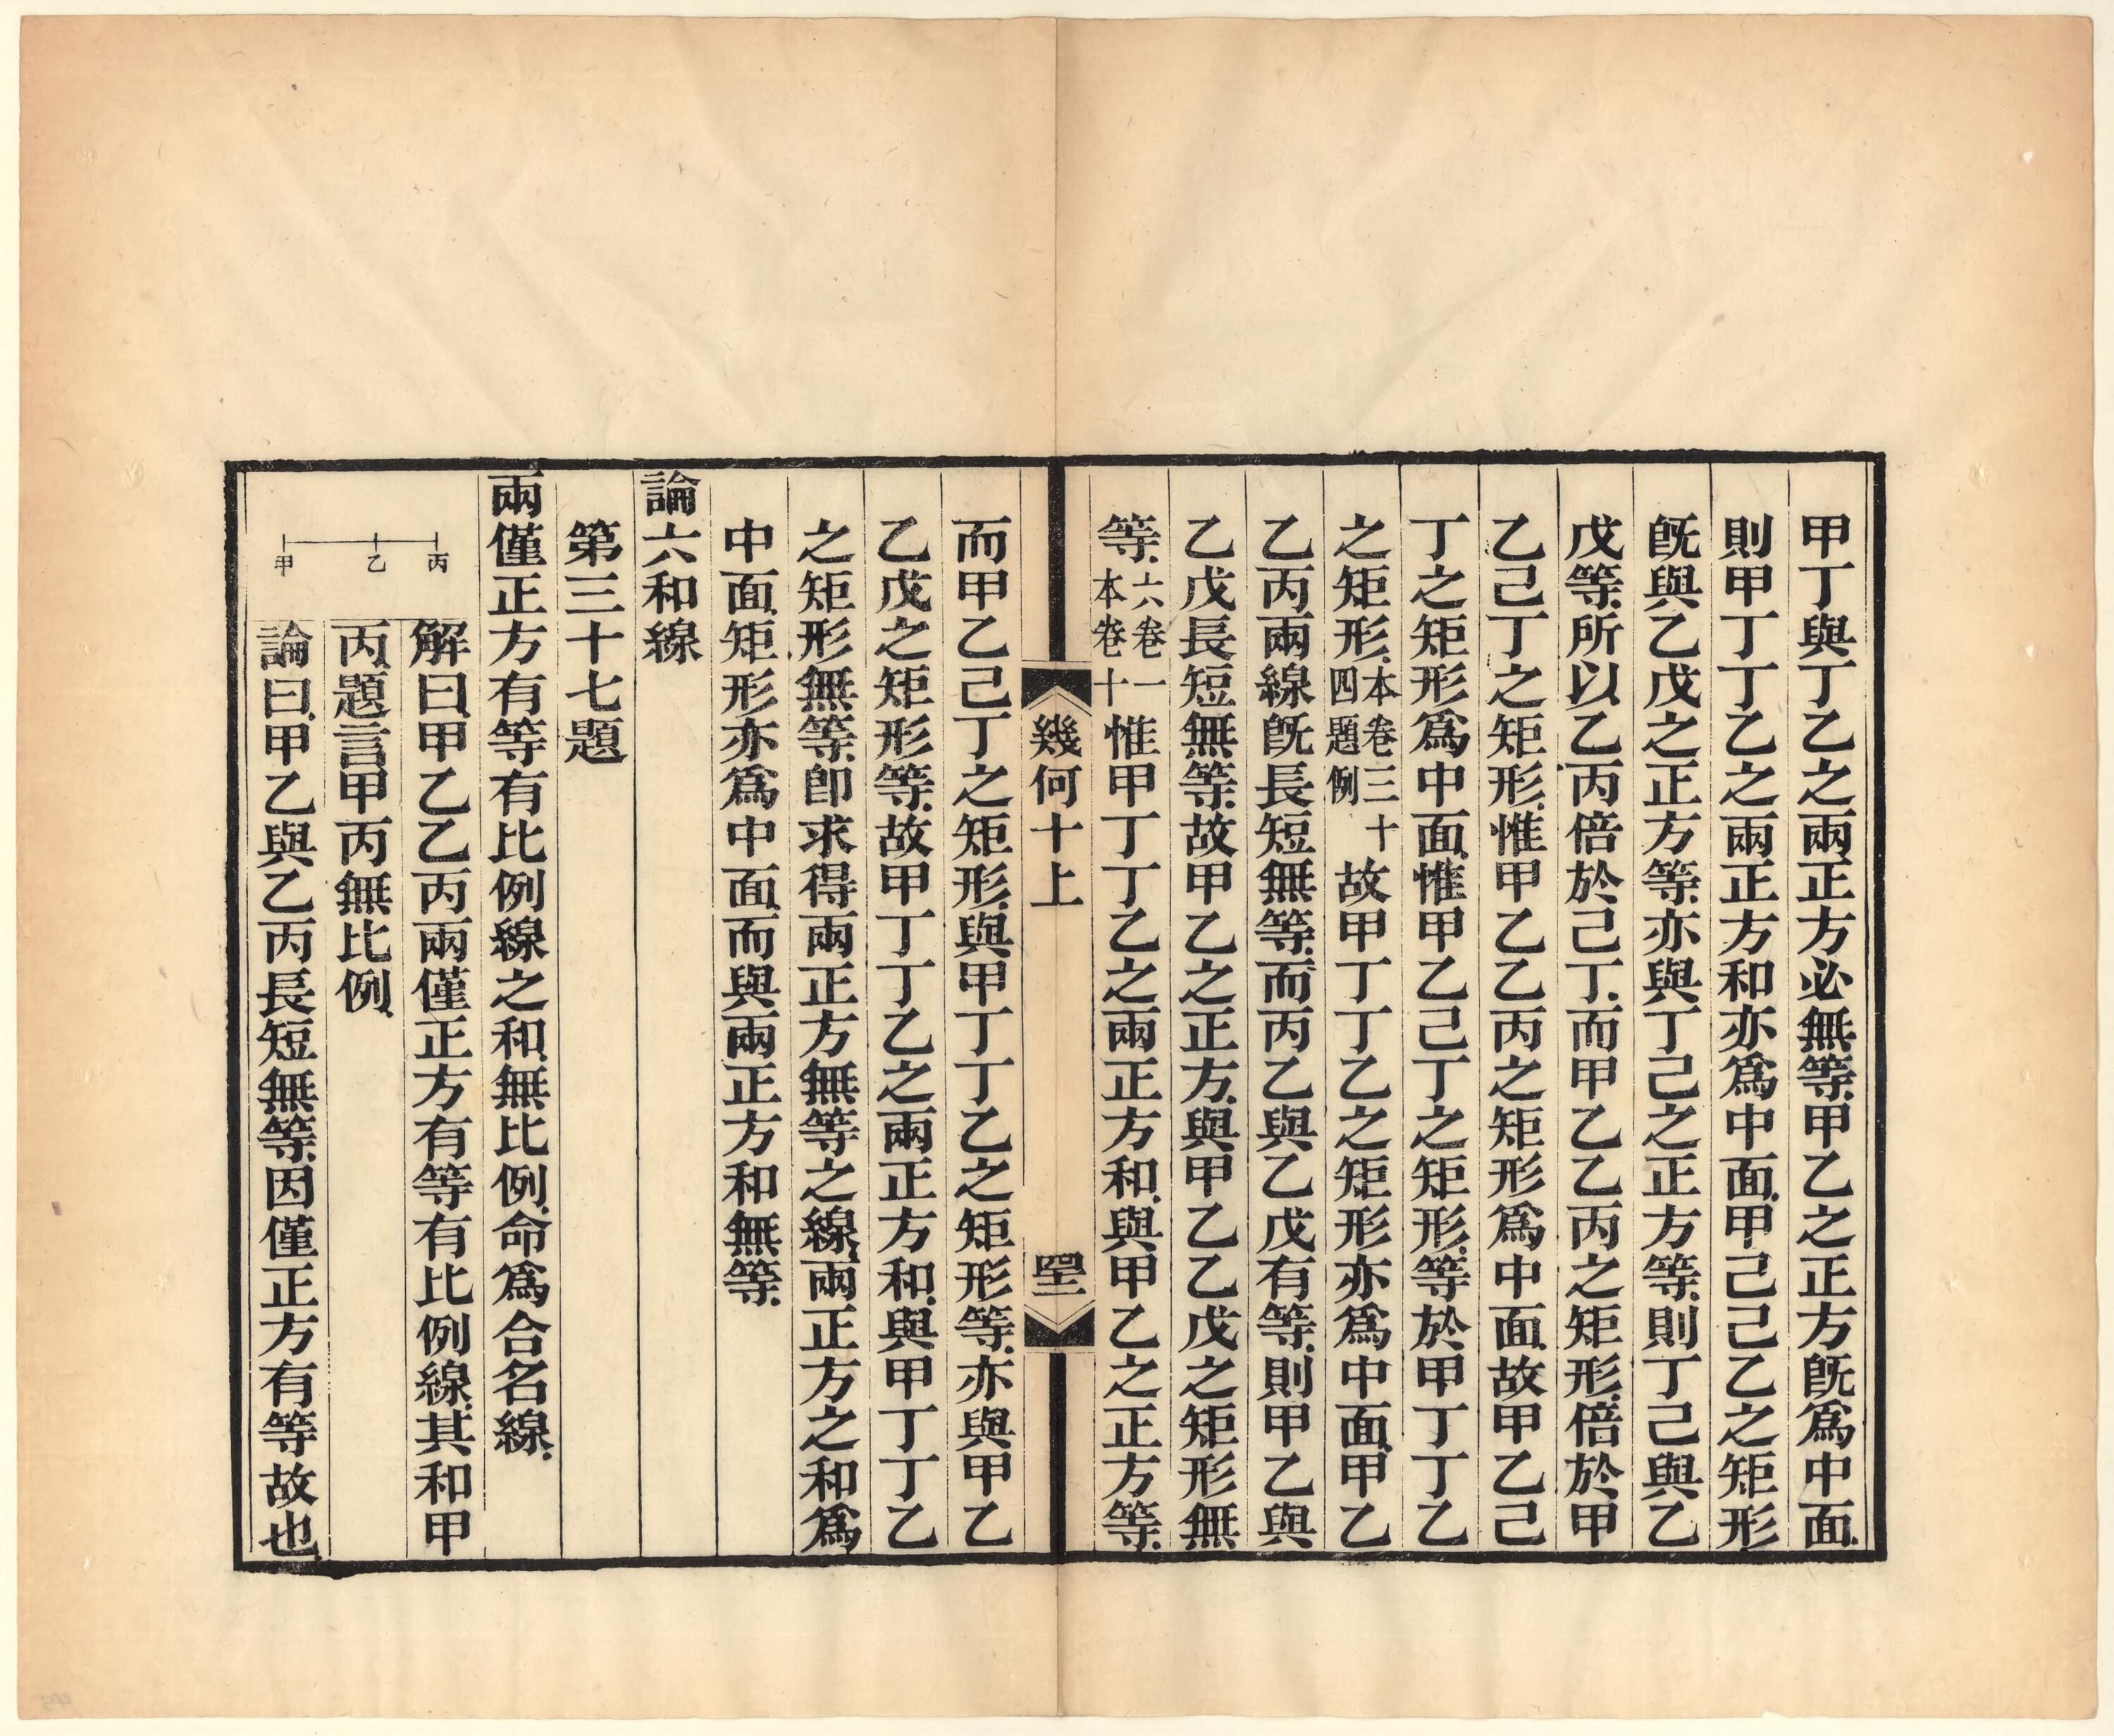 甲丁與丁乙之兩正方必無等甲乙之正方旣爲中面
則甲丁丁乙之兩正方和亦爲中面甲己己乙之矩形
旣與乙戊之正方等亦與丁己之正方等則丁己與乙
戊等所以乙丙倍於己丁而甲乙乙丙之矩形倍於甲
乙己丁之矩形惟甲乙乙丙之矩形爲中面故甲乙己
丁之矩形爲中面惟甲乙己丁之矩形等於甲丁丁乙
之矩形本卷三十四題例故甲丁丁乙之矩形亦爲中面甲乙
乙丙兩線旣長短無等而丙乙與乙戊有等則甲乙與
乙戊長短無等故甲乙之正方與甲乙乙戊之矩形無
等六卷一本卷十惟甲丁丁乙之兩正方和與甲乙之正方等
幾何十上
罡
而甲乙己丁之矩形與甲丁丁乙之矩形等亦與甲乙
乙戊之矩形等故甲丁丁乙之兩正方和與甲丁丁乙
之矩形無等卽求得兩正方無等之線兩正方之和爲
中面矩形亦爲中面而與兩正方和無等
論六和線
第三十七題
兩僅正方有等有比例線之和無比例命爲合名線
甲 乙 丙
解曰甲乙乙丙兩僅正方有等有比例線其和甲
丙題言甲丙無比例
論曰甲乙與乙丙長短無等因僅正方有等故也